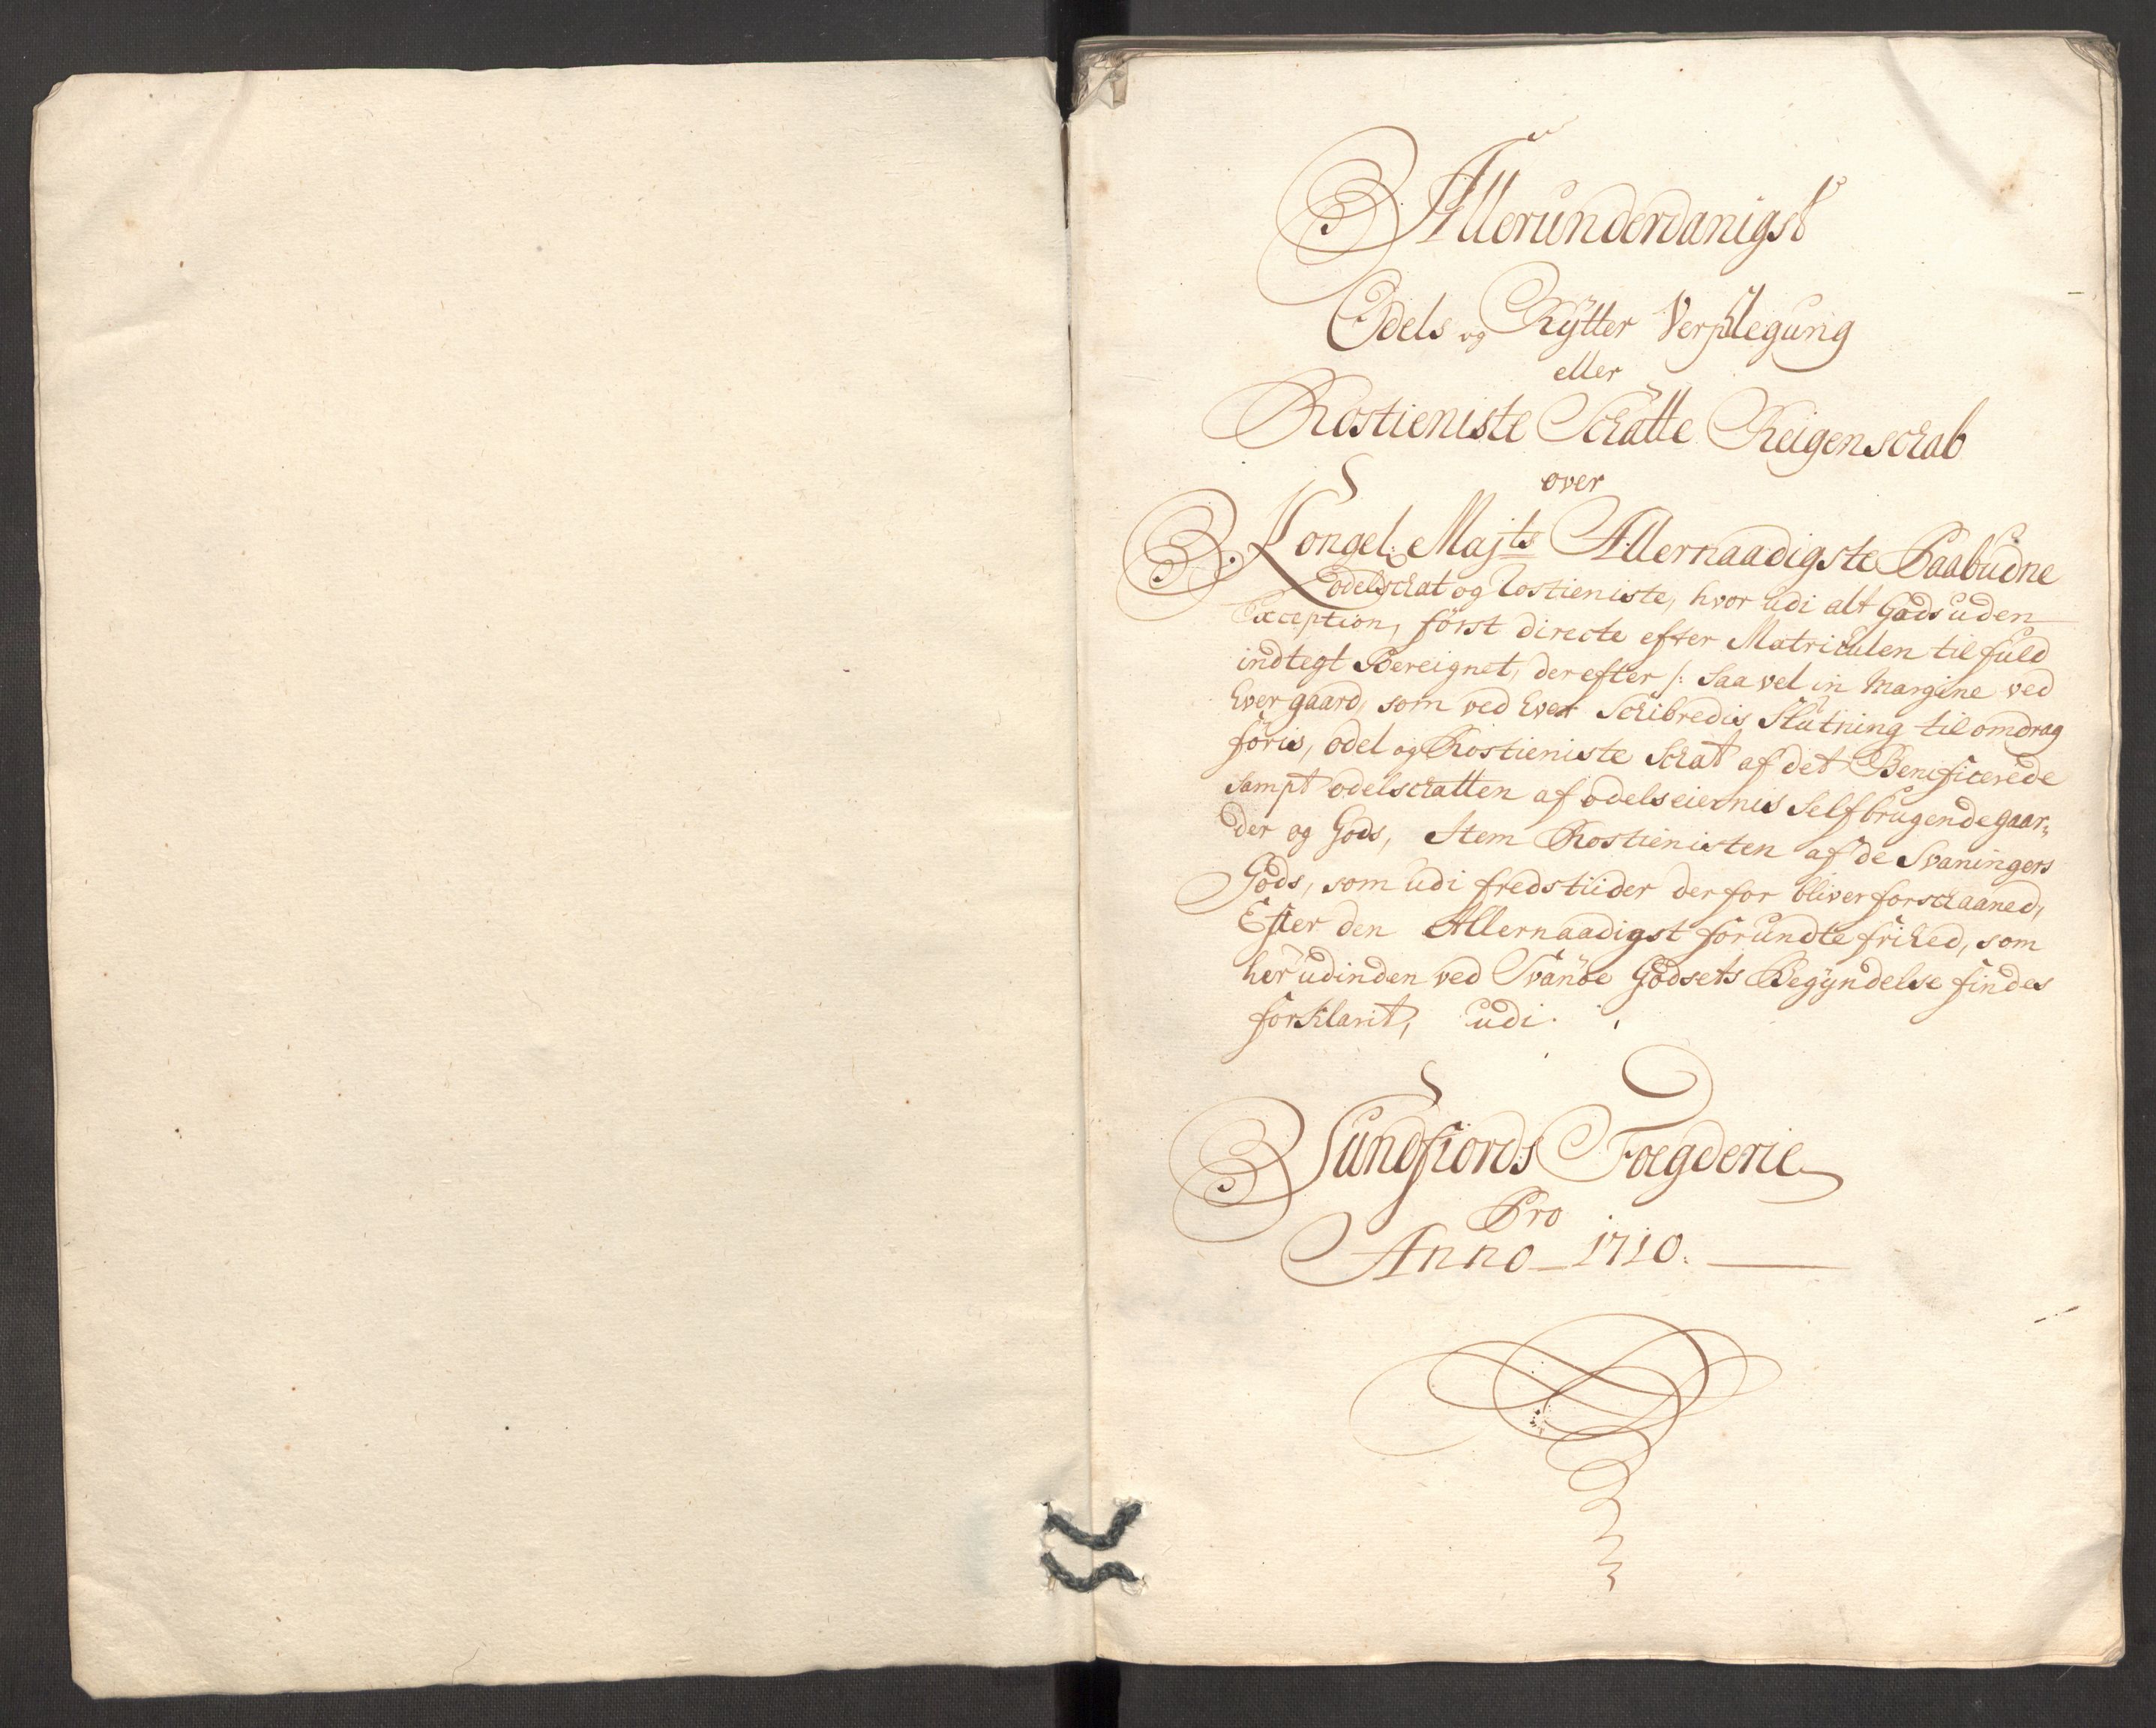 Allerunderdanigst
Odels og Rÿtter Verplegung
eller
Rostieniste Schatte Reigenschab
over
Kongel: Majts Allernaadigste Paabudne
odelschat og Rostieniste, hvor udi alt Gods uden
Exception, först directe efter Matriculen til fuld
indtegt Bereignet, der efter /: saa vel in Margine ved
hver gaard, som ved hver Schibredis Slutning til omdrag
föris, odel og Rostieniste Schat af det Benificerede
sampt odelschatten af odelseiernis Selfbrugende gaar„
der og Gods, Item Rostienisten af de Svaningers
Gods, som udi fredstiider derfor bliver forschaaned,
Efter den Allernaadigst forundte frihed, som
her udinden ved Svanöe Godsets Begÿndelse findes
forklarit, udi
Sundfiords Foegderie
Pro
Anno 1710.